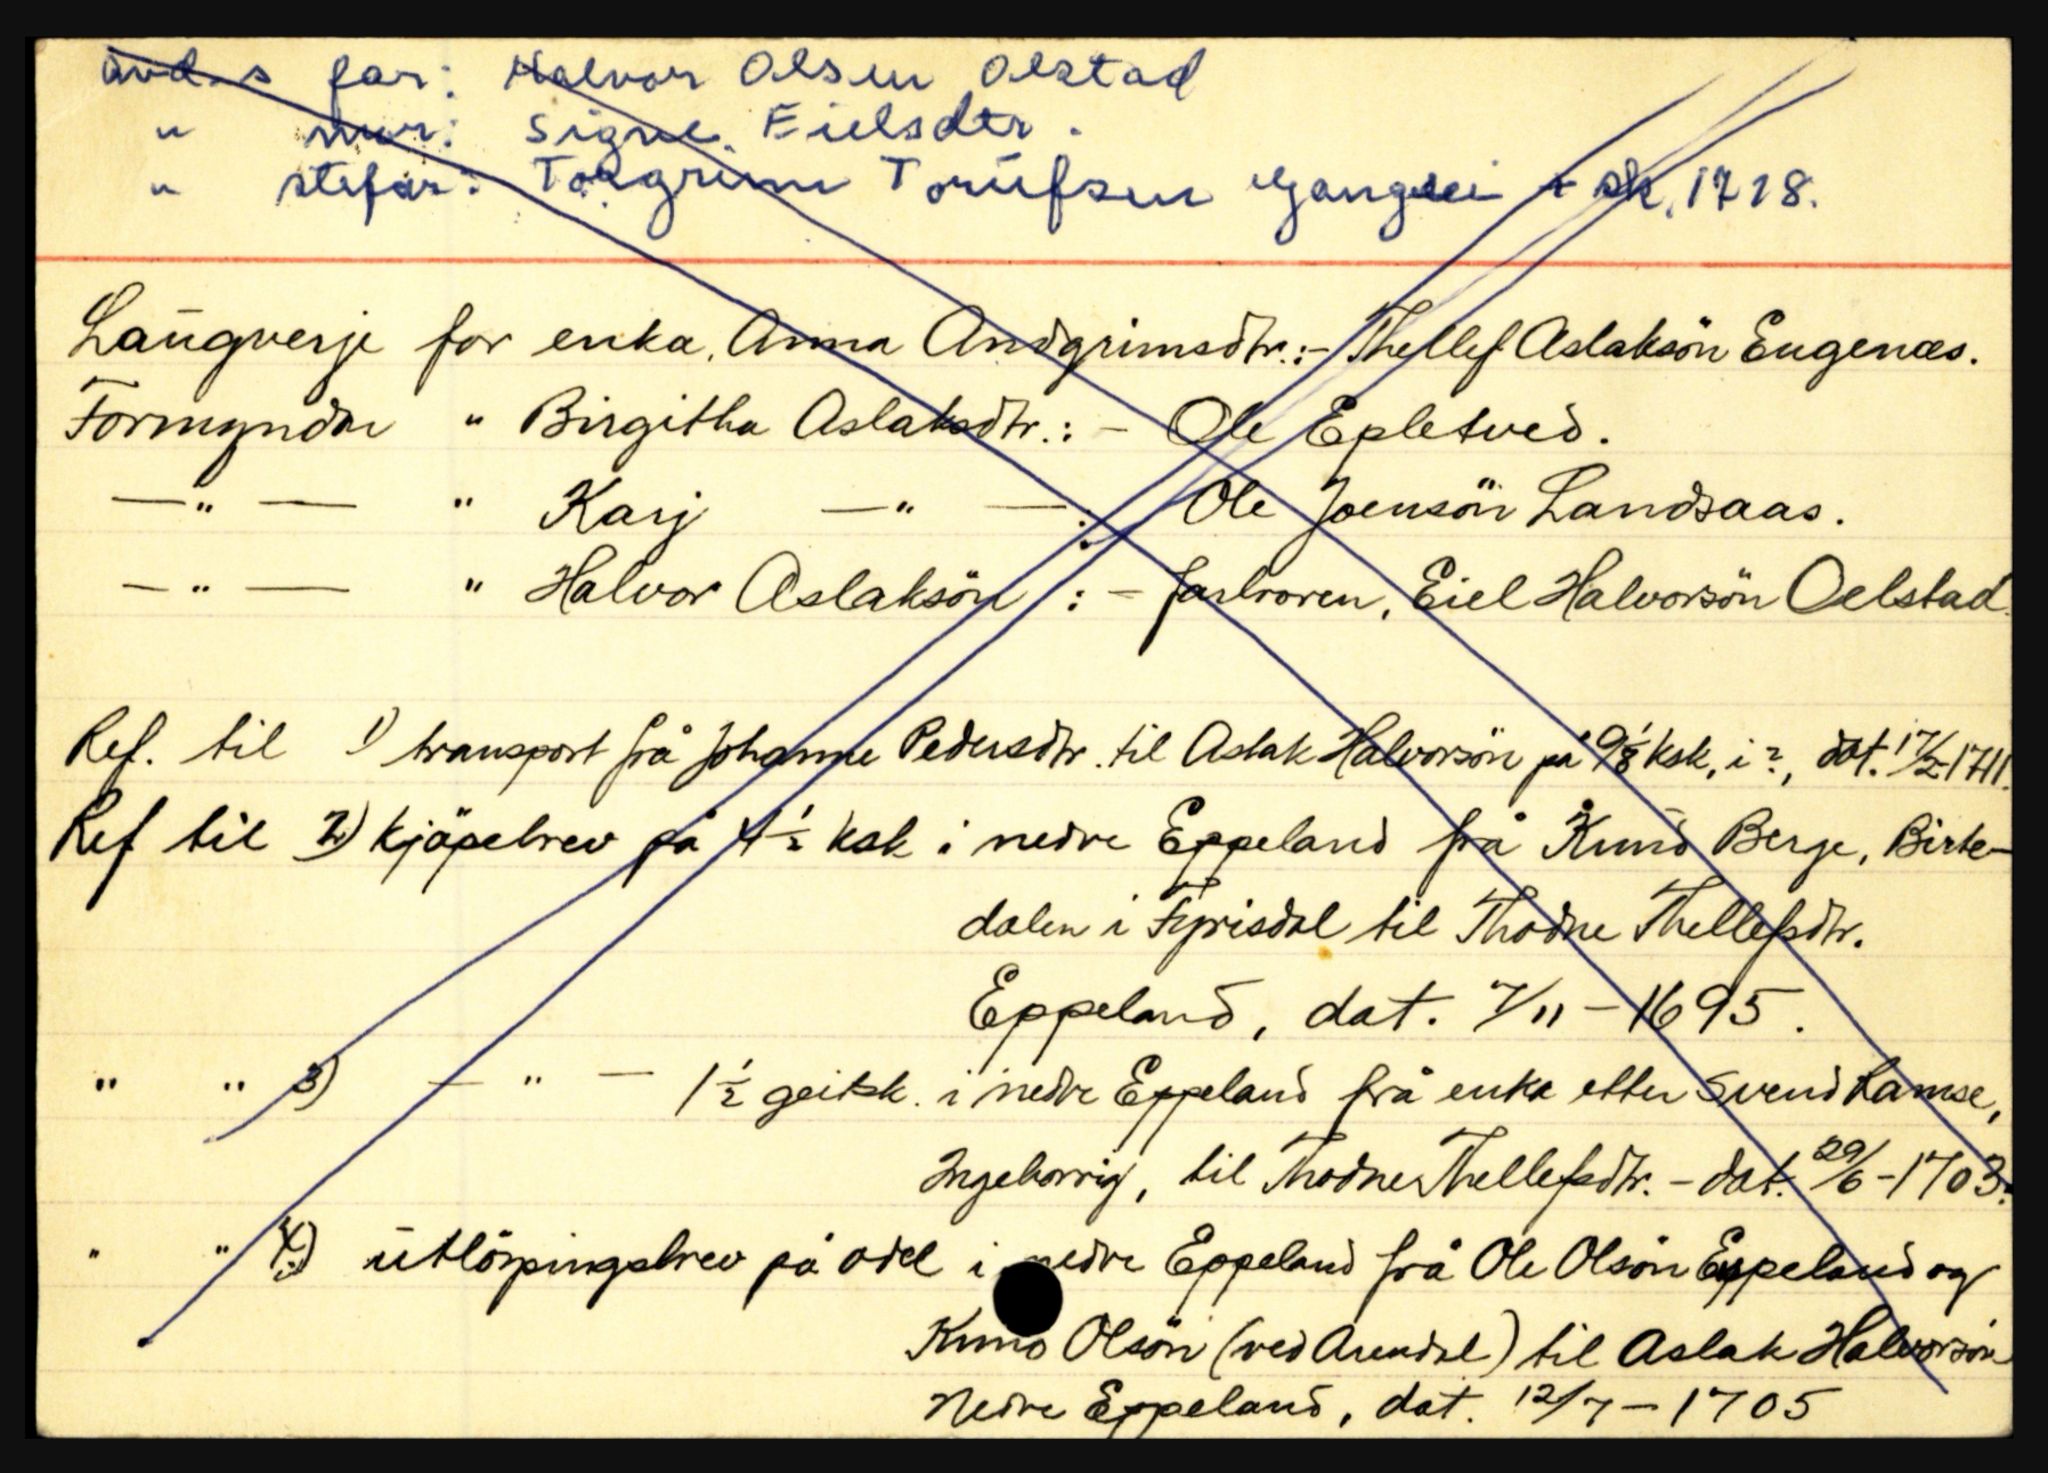 avd.s far: Halvor Olsen Olstad
" mor: Signe Eielsdtr.
" stefar: Torgrim Torüfsen Gangsei - sk. 1718.
Laŭgverje for enka, Anna Andgrimsdtr.:- Thellef Aslaksön Eugenæs.
Formyndar " Birgitha Aslaksdtr.:- Ole Epletved.
—"— " Karj —"—: Ole Joensön Landsaas.
—"— " Halvor Aslaksön :- farbroren, Eiel Halvorsön Oelstad.
Ref. til 1) transport frå Johanne Pedersdtr. til Aslak Halvorsön på 9⅛ ksk. i ?, dat. 17/2-1711.
Ref til 2) kjöpebrev på 4½ ksk i nedre Eppeland frå Knŭd Berge, Birte-
dalen i Fyrisdal til Thodne Thellefsdtr.
Eppeland, dat. 7/11-1695.
" " 3) —"— 1½ geitsk. i nedre Eppeland frå enka etter Svend Lamse,
Ingeborrig, til Thodne Thellefsdtr. - dat. 29/6-1703.
" " 4.) ŭtlöysingsbrev på odel i nedre Eppeland frå Ole Olsön Eppeland og
Knud Olsön (ved Arendal) til Aslak Halvorsön
Nedre Eppeland, dat. 12/7-1705